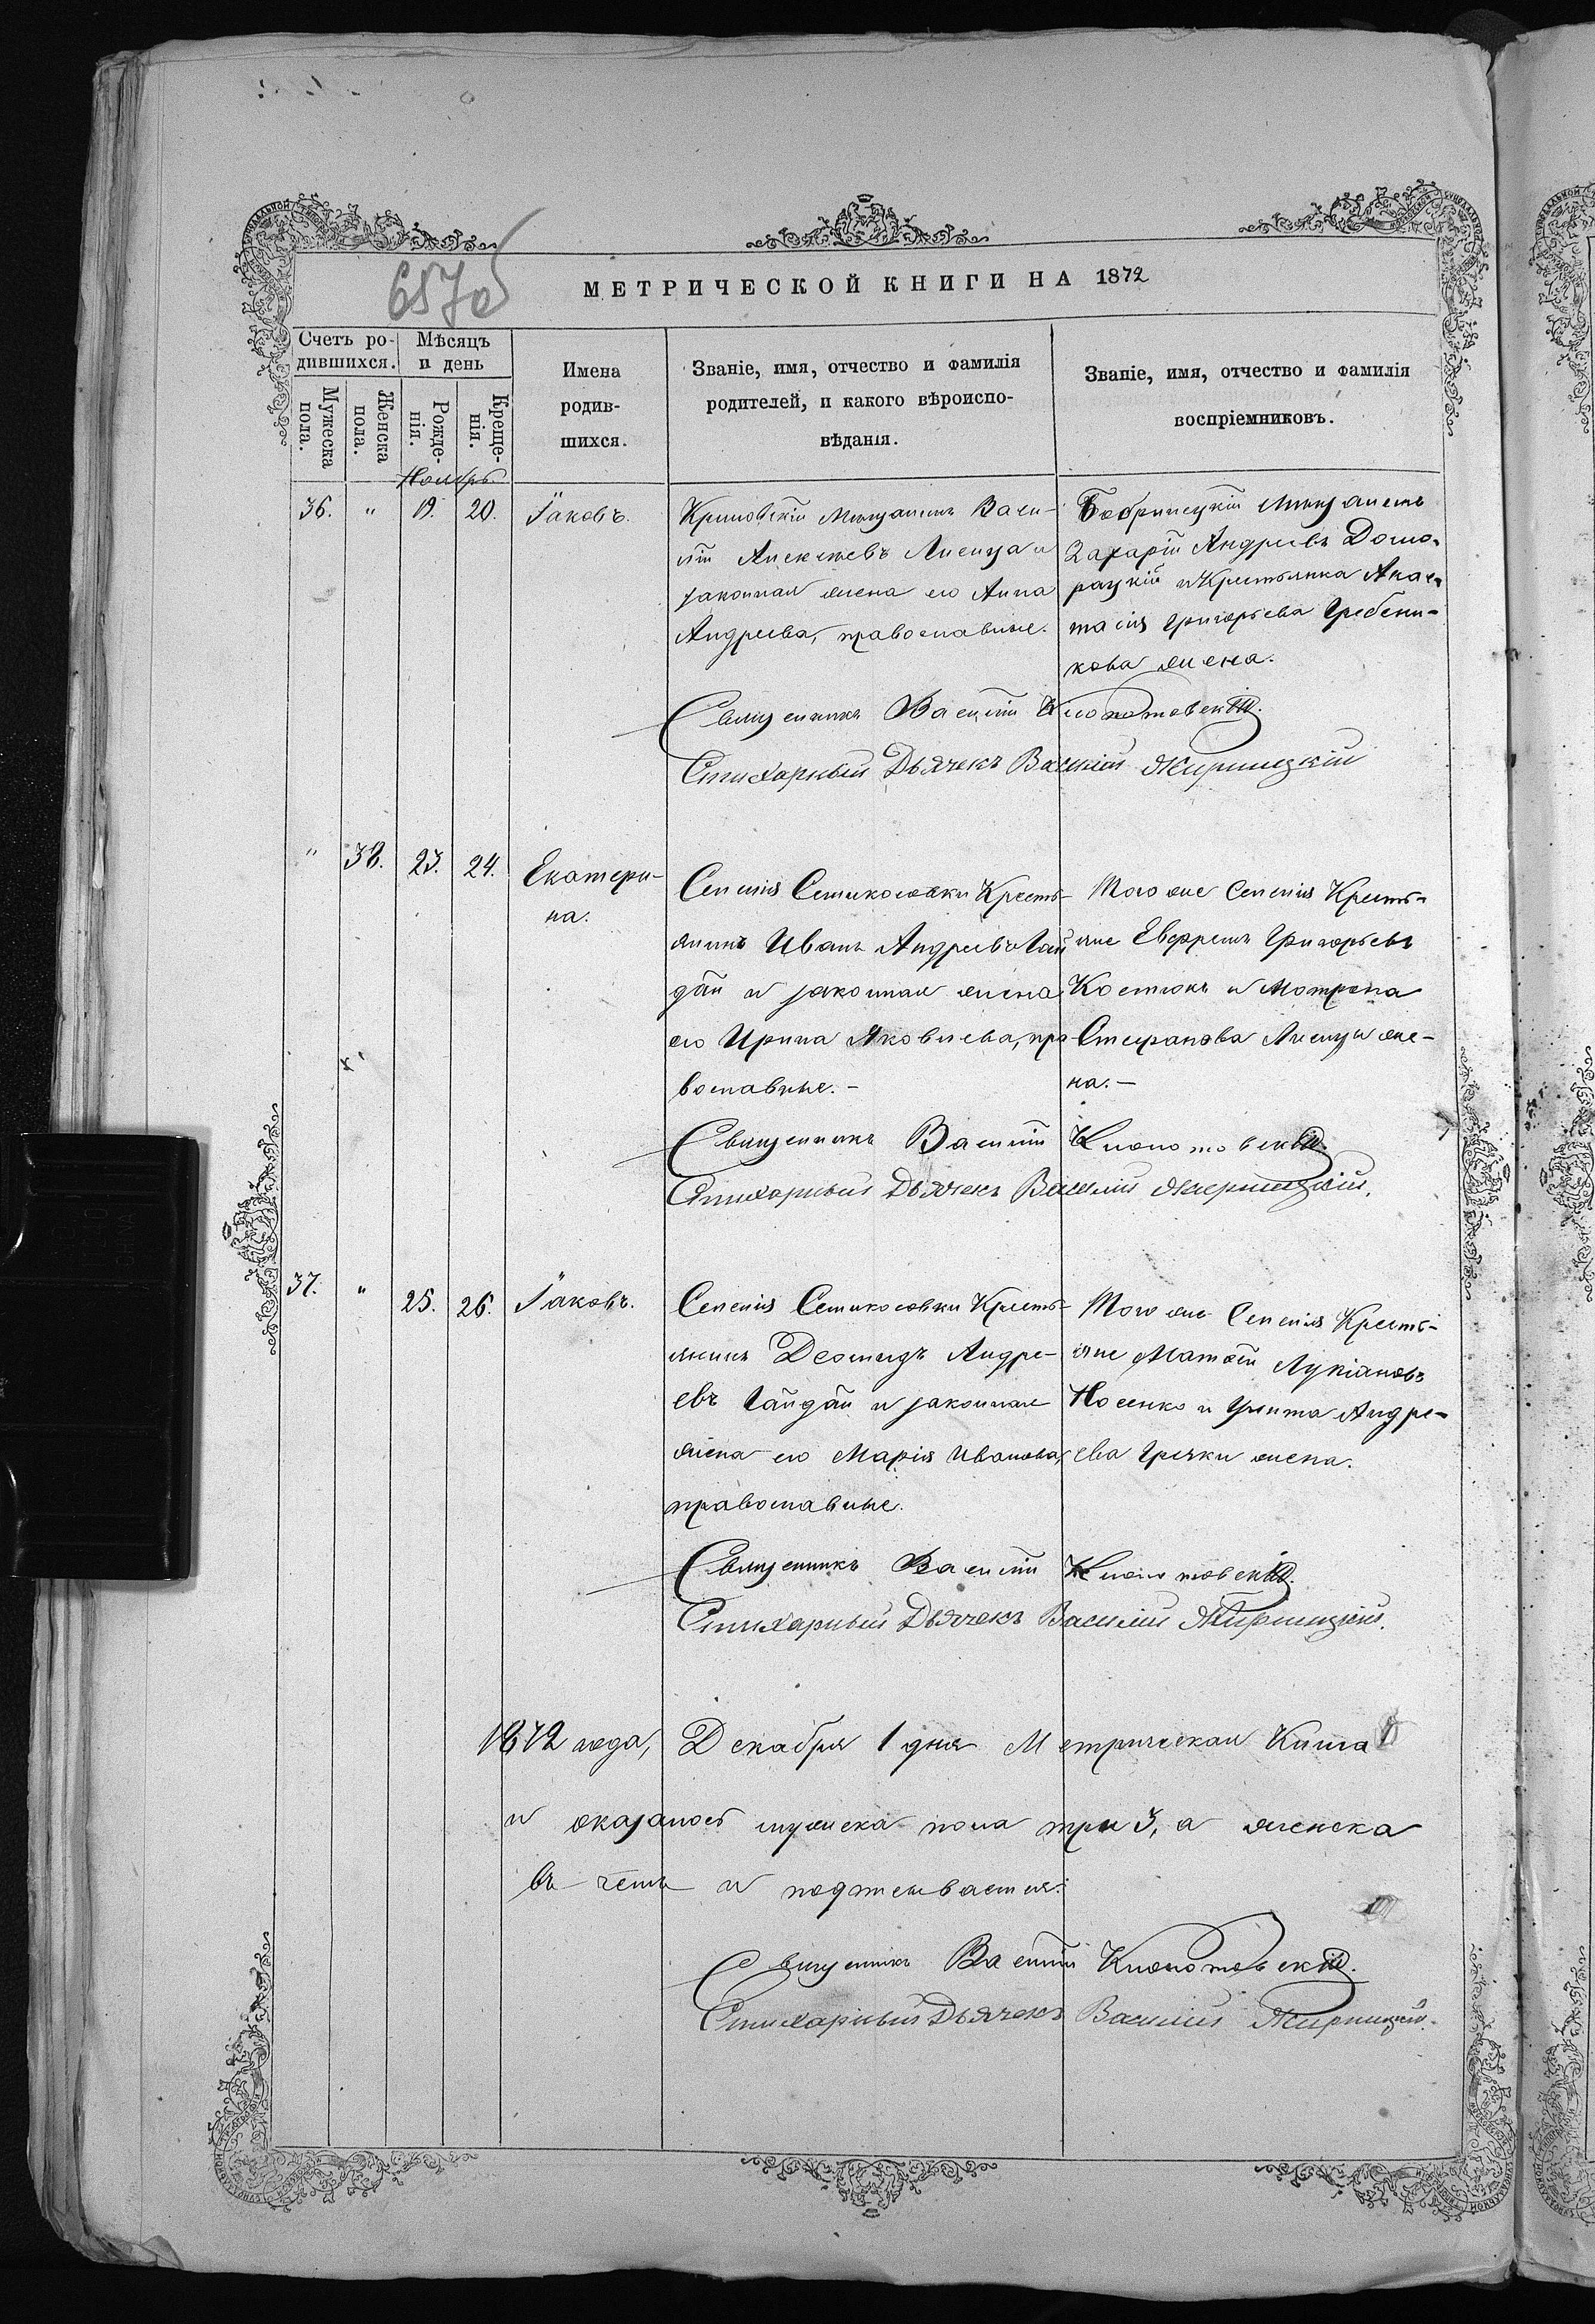 6570
МЕТРИЧЕСКОЙ КНИГИ НА 1872
Счетъ ро-
дившихся.
Мѣсяцъ
и день
Мужеска
пола.
Женска
пола.
Рожде-
нія.
Креще-
нія.
Имена
родив-
шихся.
Званіе, имя, отчество и фамилія
родителей, и какого вѣроиспо-
вѣданія.
Званіе, имя, отчество и фамилія
воспріемниковъ.
Ноябрь
36. " 19. 20. Іаковъ.
Криловскій Мѣщанинъ Васи-
лій Алексѣевъ Лисица и
законная жена его Анна
Андреева, православные.
Бобринецкій Мѣщанинъ
Захарій Андреевъ Домо-
рацкій и Крестьянка Анас-
тасія Григорьева Гребени-
кова жена.
Священникъ Василій Клопотовскій.
Стихарный Дьячекъ Василій Жирицкій
" 38. 23. 24. Екатери-
на.
Селенія Семиковки Кресть-
янинъ Иванъ Андреевъ Гай
дай и законная жена
его Ирина Яковлева, пра-
вославные. -
Того же Селенія Кресть-
яне Евфремъ Григорьевъ
Костюкъ и Мотрона
Стефанова Лисицы же-
на. -
Священникъ Василій Клопотовскій.
Стихарный Дьячекъ Василій Жирицкій.
37. " 25. 26. Іаковъ.
Селенія Семиковки Кресть-
янинъ Деомидъ Андре-
евъ Гайдай и законная
жена его Марія Иванова,
православные.
Того же Селенія Кресть-
яне Матѳей Лукіановъ
Носенко и Улита Андре-
ева Гречки жена.
Священникъ Василій Клопотовскій.
Стихарный Дьячекъ Василій Жирицкій.
1872 года, Декабря 1 дня Метрическая Книга
и оказалось мужеска пола три 3, а женска
въ чемъ и подписываемся:
Священникъ Василій Клопотовскій.
Стихарный Дьячекъ Василій Жирицкій.